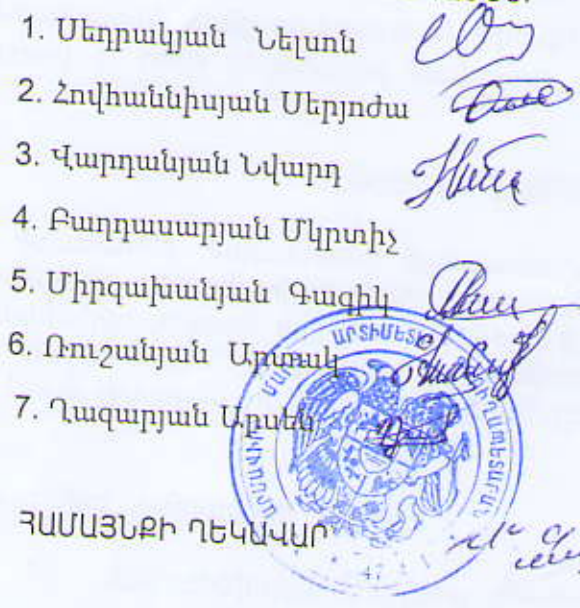 1. Սեդրակյան Նելսոն
2. Հովհաննիսյան Սերյոժա
3. Վարդանյան Նվարդ
4. Բաղդասարյան Մկրտիչ
5. Միրզախանյան Գագիկ
6. Ռուշանյան Արտակ
7. Ղազարյան Արսեն
ՀԱՄԱՅՆՔԻ ՂԵԿԱՎԱՐ